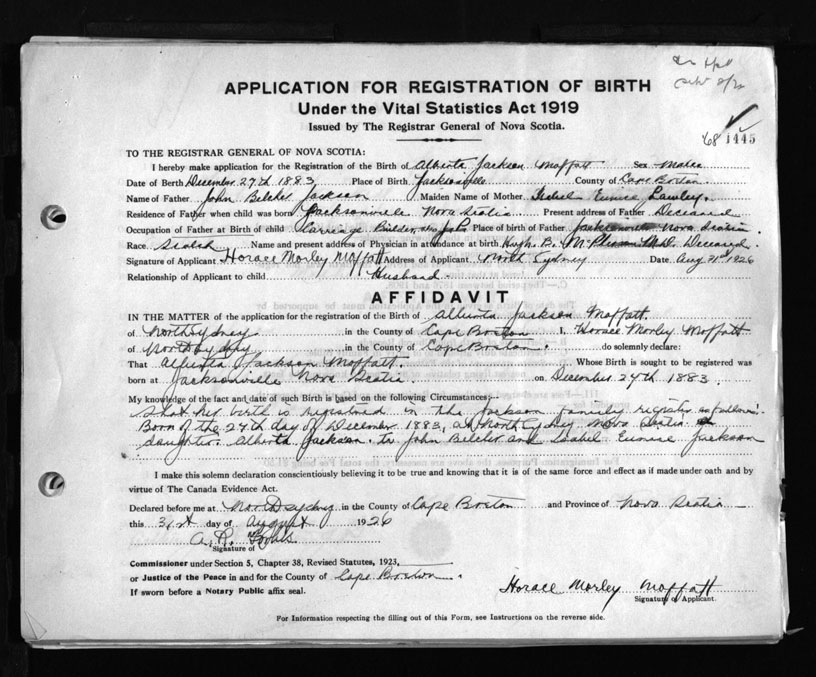 APPLICATION FOR REGISTRATION OF BIRTH
Under the Vital Statistics Act 1919
Issued by The Registrar General of Nova Scotia.
'68 1445
TO THE REGISTRAR GENERAL OF NOVA SCOTIA:
I hereby make application for the Registration of the Birth of Alberta Jackson Moffatt Sex
Date of Birth December 29th 1883 Place of Birth Jacksonville County of Cape Breton.
Name of Father John Belcher Jackson Maiden Name of Mother Isabel Eunice Lawley.
Residence of Father when child was born Jacksonville Nova Scotia Present address of Father Deceased
Occupation of Father at Birth of child Carriage Builder, Place of Birth of Father Jacksonville Nova Scotia.
Race Scotch Name and present address of Physician in attendance at birth Hugh M.D. Deceased.
Signature of Applicant Horace Morley Moffatt Address of Applicant North Sydney Date Aug 31st 1926
Relationship of Applicant to child Husband.
AFFIDAVIT
IN THE MATTER of the application for the registration of the Birth of Alberta Jackson Moffatt.
of North Sydney in the County of Cape Breton I, Horace Morley Moffatt
of North Sydney in the County of Cape Breton. do solemnly declare:
That Alberta Jackson Moffatt. Whose Birth is sought to be registered was
born at Jacksonville Nova Scotia. on December 29th 1883.
My knowledge of the fact and date of such Birth is based on the following Circumstances:—
That her birth is registered in the Jackson family register as follows:
Born of the 29th day of December 1883, at North Sydney Nova Scotia a
daughter Alberta Jackson. to John Belcher and Isabel Eunice Jackson
I make this solemn declaration conscientiously believing it to be true and knowing that it is of the same force and effect as if made under oath and by
virtue of The Canada Evidence Act.
Declared before me at North Sydney in the County of Cape Breton and Province of Nova Scotia
this 31st day of August 1926
A. R.
Signature of
Commissioner under Section 5, Chapter 38, Revised Statutes, 1923,
or Justice of the Peace in and for the County of Cape Breton.
If sworn before a Notary Public affix seal.
Horace Morley Moffatt
Signature of Applicant.
For Information respecting the filling out of this Form, see Instructions on the reverse side.